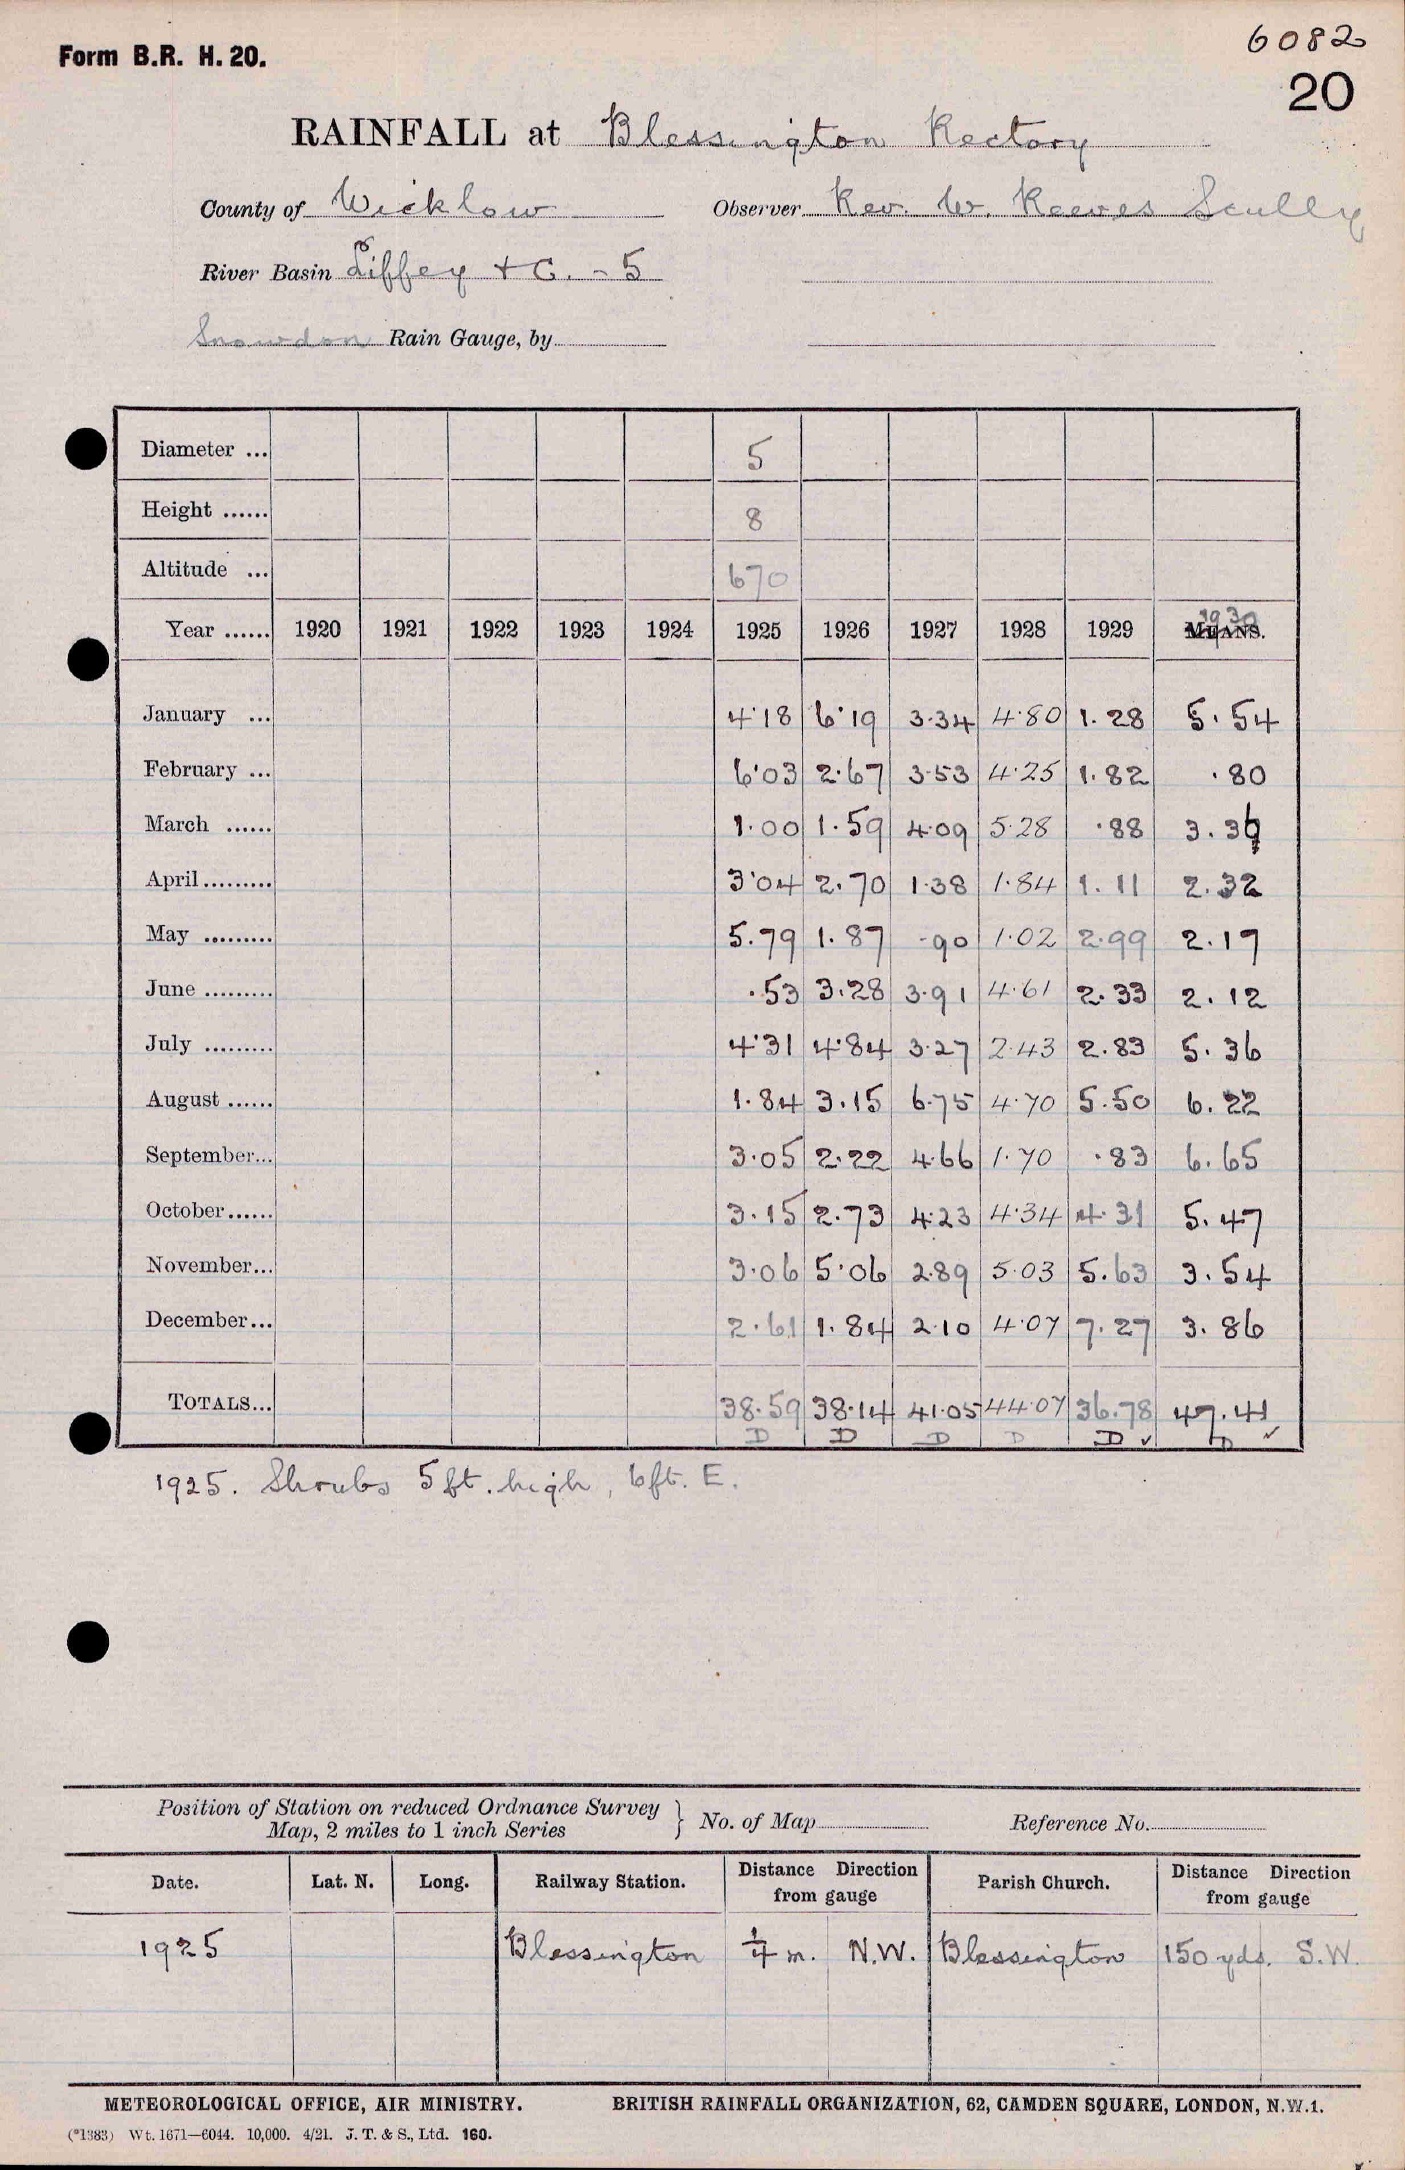 Form B.R. H. 20.
6082
20
RAINFALL at Blessington Rectory
County of Wicklow Observer Rev. W. Reeves Scully
River Basin Liffey + C. - 5
Snowdon Rain Gauge, by
Diameter ... 5
Height ...... 8
Altitude ... 670
Year ...... 1920 1921 1922 1923 1924 1925 1926 1927 1928 1929 MEANS. 1930
January ... 4·18 6·19 3·34 4·80 1·28 5·54
February ... 6·03 2·67 3·53 4·25 1·82 ·80
March ...... 1·00 1·59 4·09 5·28 ·88 3·36
April ......... 3·04 2·70 1·38 1·84 1·11 2·32
May ......... 5·79 1·87 ·90 1·02 2·99 2·17
June ......... ·53 3·28 3·91 4·61 2·33 2·12
July ......... 4·31 4·84 3·27 2·43 2·83 5·36
August ...... 1·84 3·15 6·75 4·70 5·50 6·22
September... 3·05 2·22 4·66 1·70 ·83 6·65
October ...... 3·15 2·73 4·23 4·34 4·31 5·47
November... 3·06 5·06 2·89 5·03 5·63 3·54
December... 2·61 1·84 2·10 4·07 7·27 3·86
TOTALS... 38·59 38·14 41·05 44·07 36·78 47·41
D D D D D ✓ D ✓
1925. Shrubs 5 ft. high, 6 ft. E.
Position of Station on reduced Ordnance Survey
Map, 2 miles to 1 inch Series } No. of Map Reference No.
Date. Lat. N. Long. Railway Station. Distance Direction from gauge Parish Church. Distance Direction from gauge
1925 Blessington 1/4 m. N.W. Blessington 150 yds. S.W.
METEOROLOGICAL OFFICE, AIR MINISTRY. BRITISH RAINFALL ORGANIZATION, 62, CAMDEN SQUARE, LONDON, N.W.1.
(*1383) Wt. 1671—6044. 10,000. 4/21. J. T. & S., Ltd. 160.